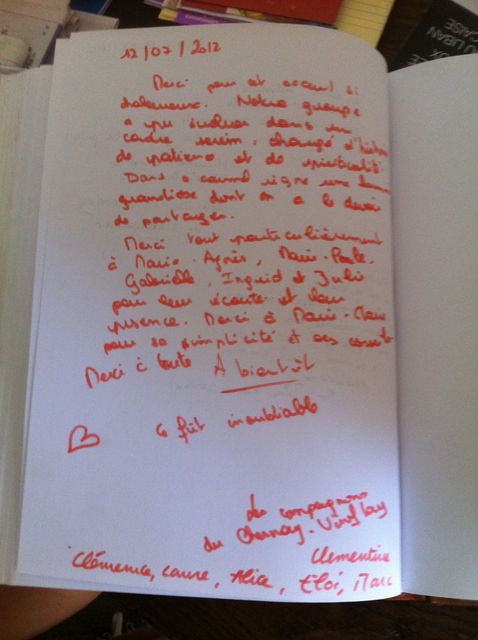 12/07/2012
Merci pour cet accueil si
chaleureux. Notre groupe
a pu évoluer dans un
cadre serein, chargé d'histoire
de patience et de spiritualité.
Dans ce carmel règne une
grandiose dont on a le devoir
de partager.
Merci tout particulièrement
à Marie-Agnès, Marie-Paule,
Gabrielle, Ingrid et Julie
pour leur écoute et leur
présence. Merci à Marie-Claire
pour sa simplicité et ses conseils
Merci à toute A bientôt
Ce fût inoubliable
Les compagnons
du
Clementine
Clémence, Laure, Alice, Eloi, Marc
LIBAN